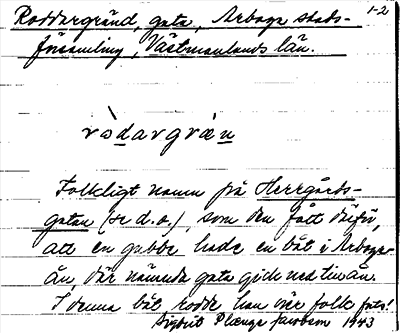 1-2
Roddargränd, gata, Arboga stads-
församling, Västmanlands län.
ròdargræn
Folkligt namn på Herrgårds-
gatan (se d.o.), som den fått därför,
att en gubbe hade en båt i Arboga-
ån, där nämnda gata gick ned till ån.
I denna båt rodde han över folk
Sigbrit Plænge Jacobson 1943